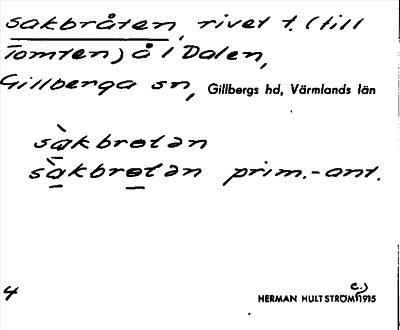 sakbråten, rivet t. (till
Tomten) å i Dalen,
Gillberga sn, Gillbergs hd, Värmlands län
sàkbrotən
sàkbrotən prim.-ant.
4
HERMAN HULTSTRÖM c.) 1915